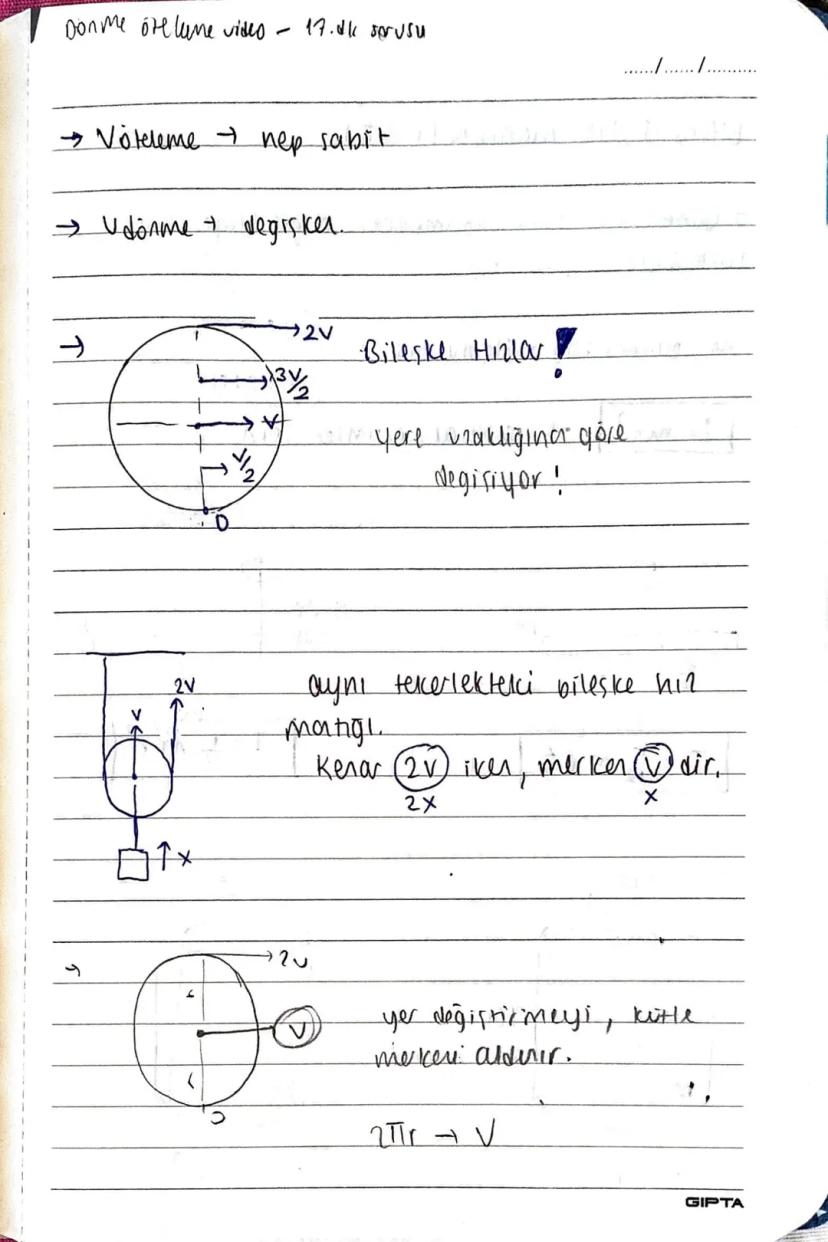 Dönme öteleme video - 17.dk sorusu
....../....../..........
→ Vöteleme → hep sabit
→ Vdönme → değişken.
→ 2V
Bileşke Hızlar!
3V/2
V
yere uzaklığına göre
V/2
değişiyor!
O
2V
aynı tekerlekteki bileşke hız
V
mantığı.
Kenar 2V iken, merkez V dir.
2x
x
↑x
→ 2V
V
yer değiştirmeyi, kütle
merkezi aldırır.
2πr → V
GIPTA